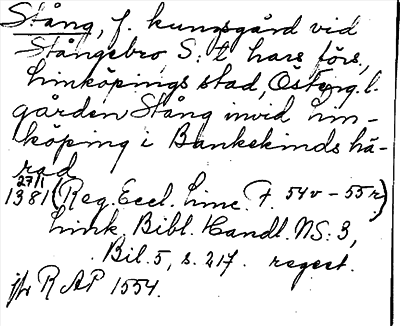 Stång, f. kungsgård vid
Stångebro, S:t Lars förs.,
Linköpings stad, Österg. l.
gården Stång invid Lin-
köping i Bankekinds hä-
rad
27/1
1381 (Reg. Eccl. Linc. f. 54v - 55r.)
Link. Bibl. Handl. NS: 3,
Bil. 5, s. 217. regest.
jfr RAP 1554.